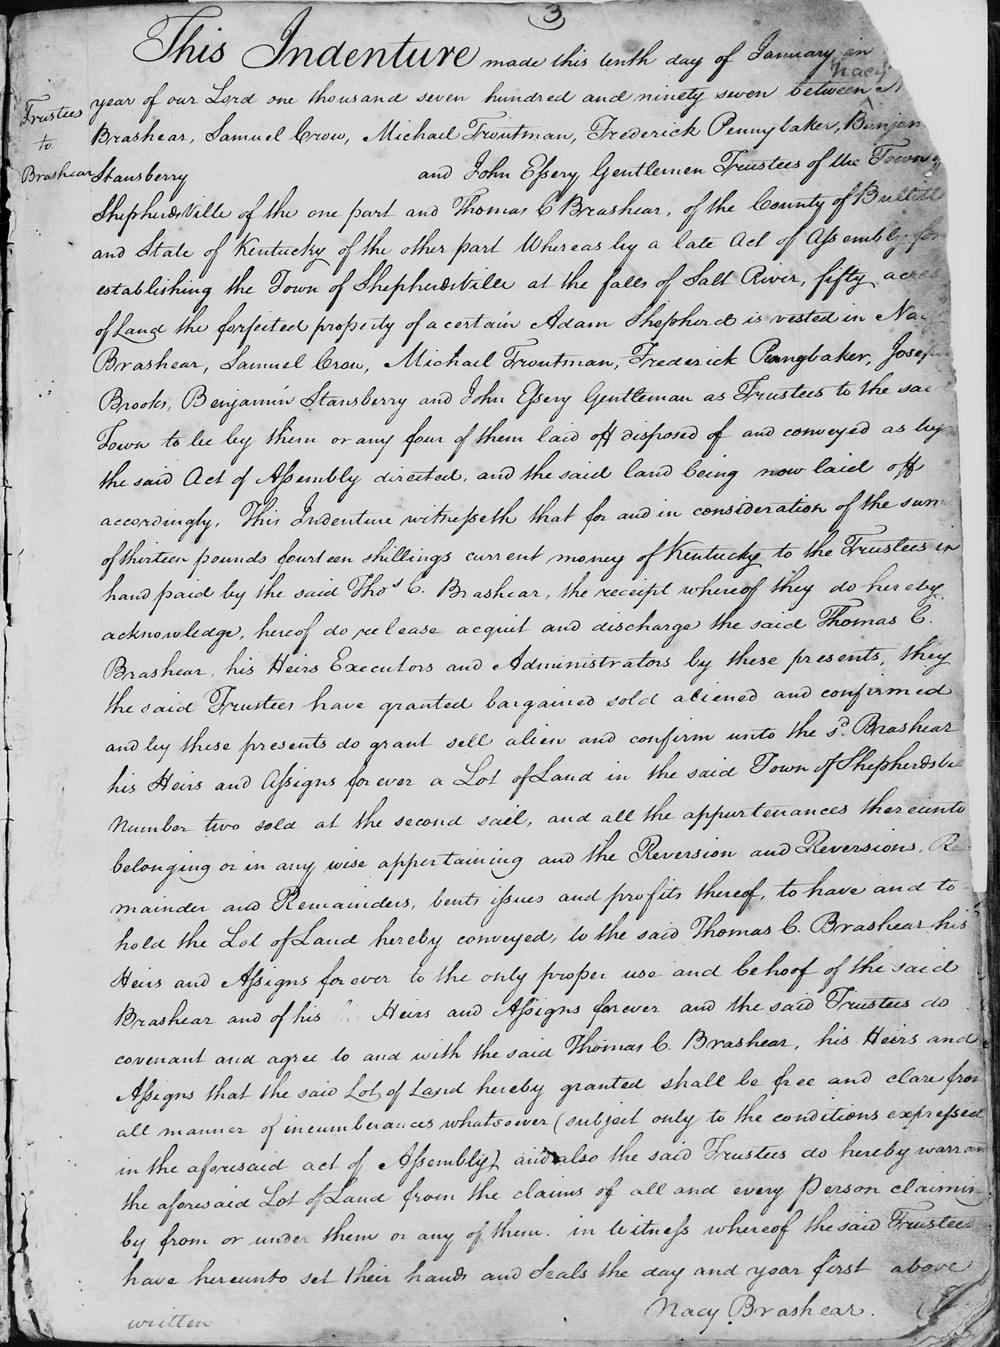 3
This Indenture made this tenth day of January in
Nacy
year of our Lord one thousand seven hundred and ninety seven between
Trustees
to
Brashear
Brashear, Samuel Crow, Michael Troutman, Frederick Pennybaker, Benjam
Stansberry and John Eſsery Gentlemen Trustees of the Town
Shepherdsville of the one part and Thomas C Brashear, of the County of Bullitt
and State of Kentucky of the other part Whereas by a late Act of Aſsembly for
establishing the Town of Shepherdsville at the falls of Salt River, fifty acres
of Land the forfeited property of a certain Adam Shepherd is vested in Nacy
Brashear, Samuel Crow, Michael Troutman, Frederick Pennybaker, Joseph
Brooks, Benjamin Stansberry and John Eſsery Gentleman as Trustees to the sai
Town to be by them or any four of them laid off disposed of and conveyed as by
the said Act of Aſsembly directed, and the said land being now laid off
accordingly, This Indenture witneſseth that for and in consideration of the sum
of thirteen pounds fourteen shillings current money of Kentucky to the Trustees in
hand paid by the said Thos C. Brashear, the receipt whereof they do hereby
acknowledge, hereof do release acquit and discharge the said Thomas C.
Brashear, his Heirs Executors and Administrators by these presents, they
the said Trustees have granted bargained sold aliened and confirmed
and by these presents do grant sell alien and confirm unto the sd. Brashear
his Heirs and Aſsigns forever a Lot of Land in the said Town of Shepherdsvil
Number two sold at the second sail, and all the appurtenances thereunto
belonging or in any wise appertaining and the Reversion and Reversions, Re
mainder and Remainders, bents iſsues and profits thereof, to have and to
hold the Lot of Land hereby conveyed, to the said Thomas C. Brashear his
Heirs and Aſsigns forever to the only proper use and behoof of the said
Brashear and of his Heirs and Aſsigns forever and the said Trustees do
covenant and agree to and with the said Thomas C. Brashear, his Heirs and
Aſsigns that the said Lot of Land hereby granted shall be free and clare from
all manner of incumberances whatsoever (subject only to the conditions expreſsed
in the aforesaid act of Aſsembly) and also the said Trustees do hereby warran
the aforesaid Lot of Land from the claims of all and every Person claimin
by from or under them or any of them. in Witneſs whereof the said Trustees
have hereunto set their hands and Seals the day and year first above
written Nacy Brashear.